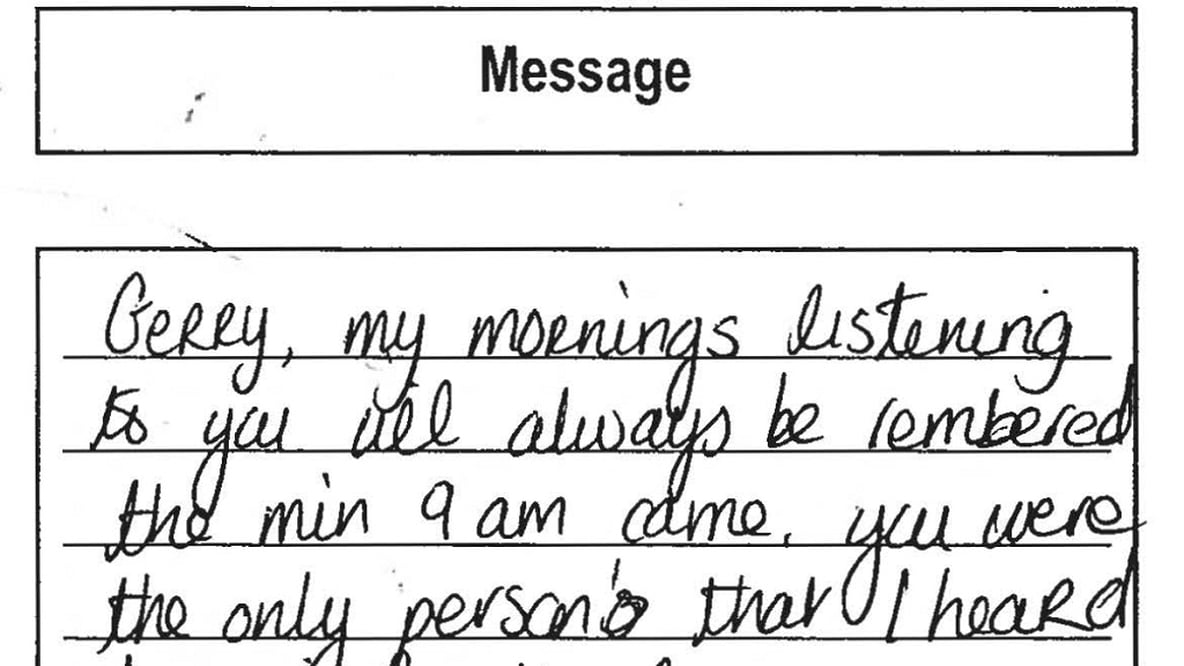 Message
Gerry, my mornings listening
to you will always be rembered
the min 9 am came. you were
the only person's that I heard